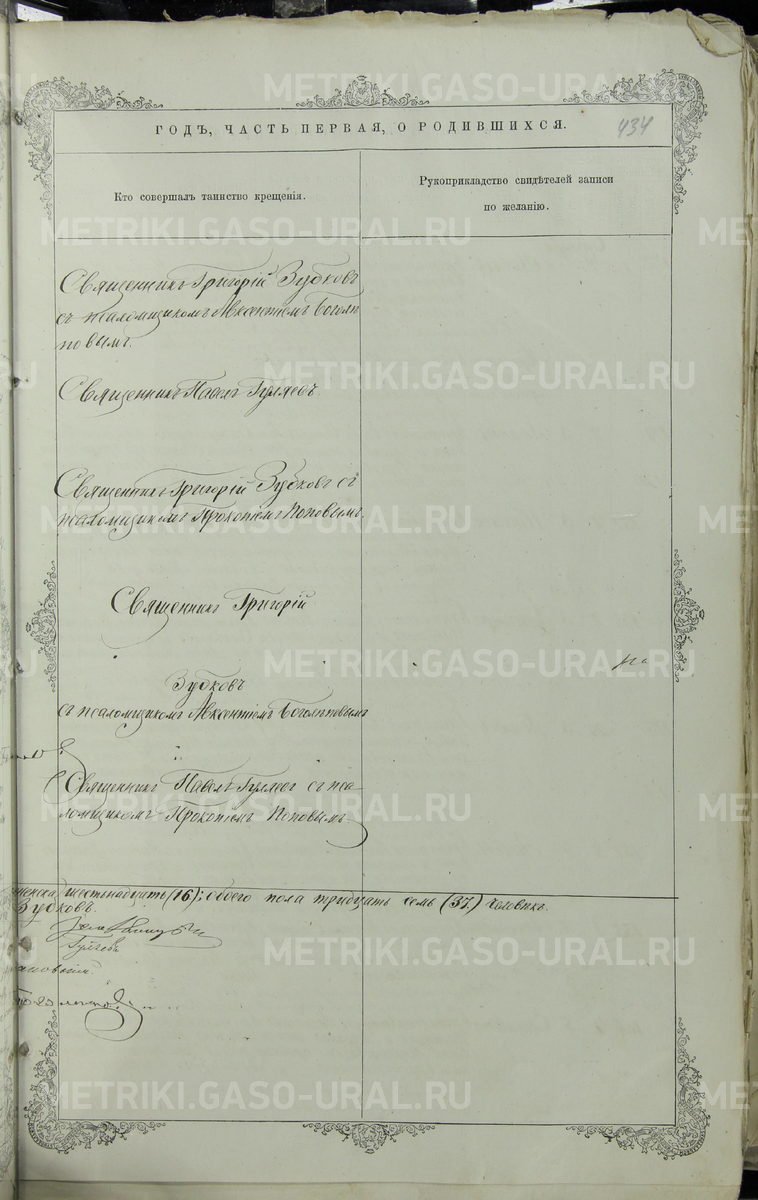 ГОДЪ, ЧАСТЬ ПЕРВАЯ, О РОДИВШИХСЯ.
434
Кто совершалъ таинство крещенія.
Рукоприкладство свидѣтелей записи
по желанію.
Священникъ Григорій Зубковъ
съ псаломщикомъ Авксентіемъ Боголѣ
повымъ.
Священникъ Павелъ Гуляевъ.
Священникъ Григорій Зубковъ съ
псаломщикомъ Прокопіемъ Поповымъ.
Священникъ Григорій
Зубковъ
съ псаломщикомъ Авксентіемъ Боголѣповымъ
Священникъ Павелъ Гуляевъ съ пса-
ломщикомъ Прокопіемъ Поповымъ
женска шестьнадцать (16); обоего пола тридцать семь (37) человѣкъ.
Зубковъ.
Гуляевъ
METRIKI.GASO-URAL.RU